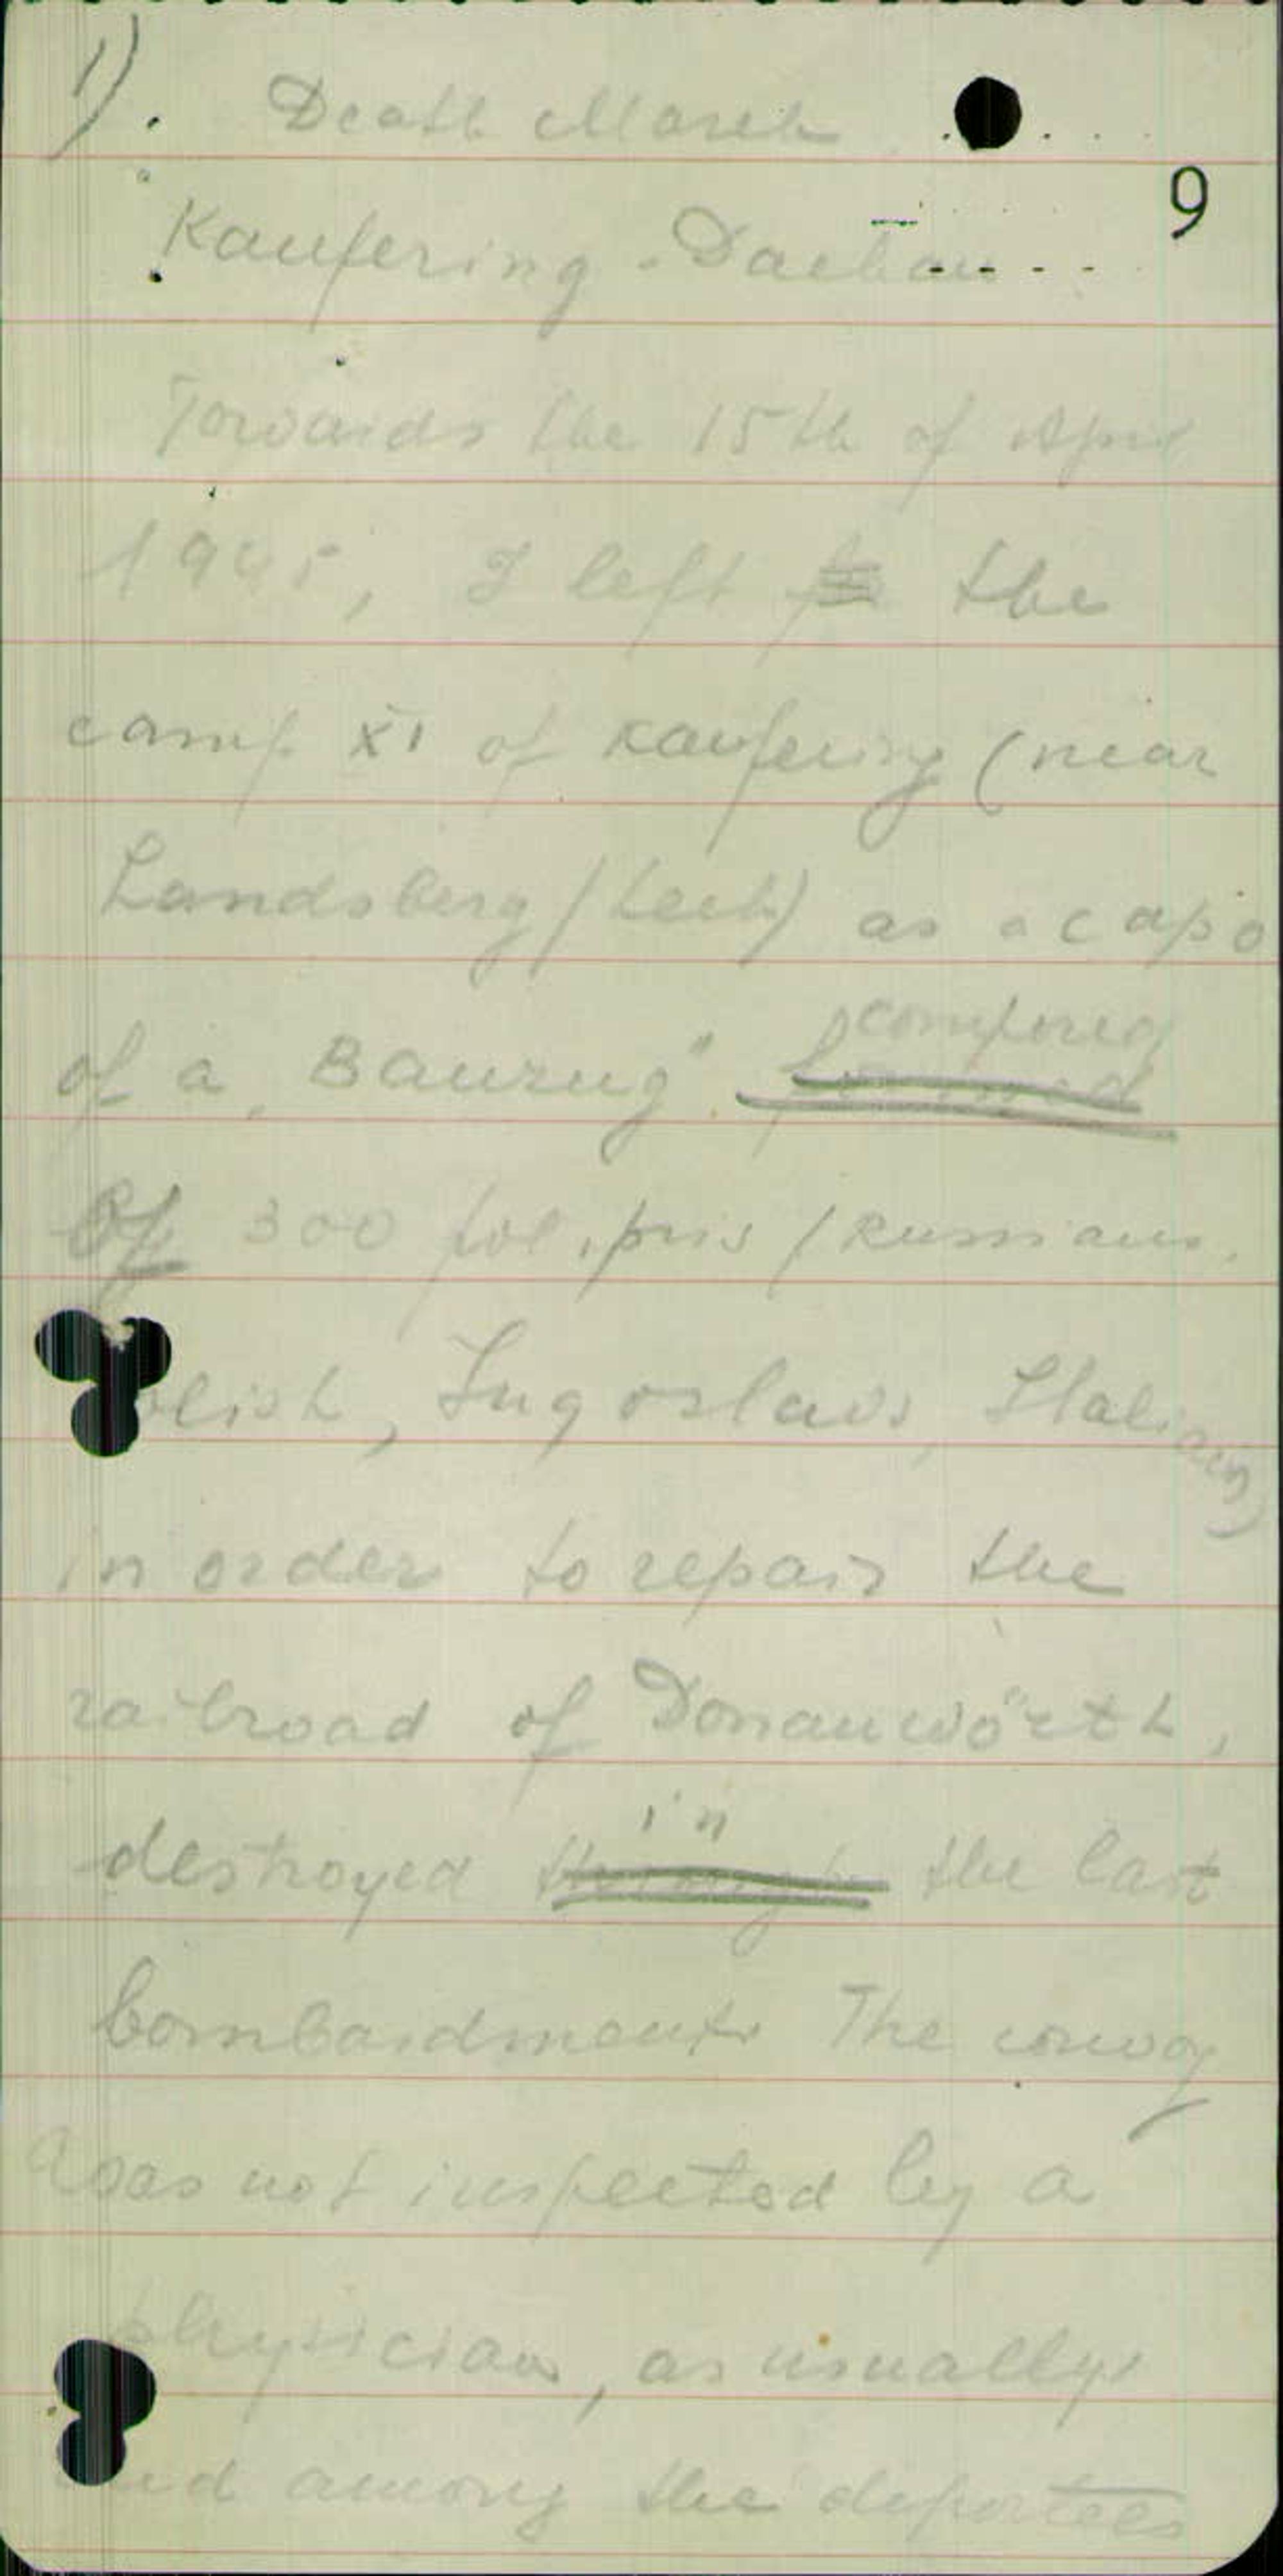 1). Death March
9
Kaufering - Dachau
Towards the 15th of April
1945, I left the
camp XI of Kaufering (near
Landsberg/Lech) as a capo
of a „Bauzug" composed
of 300 pol. pris (Russians,
Polish, Jugoslavs, Italians)
in order to repair the
railroad of Donauwörth,
destroyed in the last
bombardments. The convoy
was not inspected by a
physician, as usually,
and among the deportees